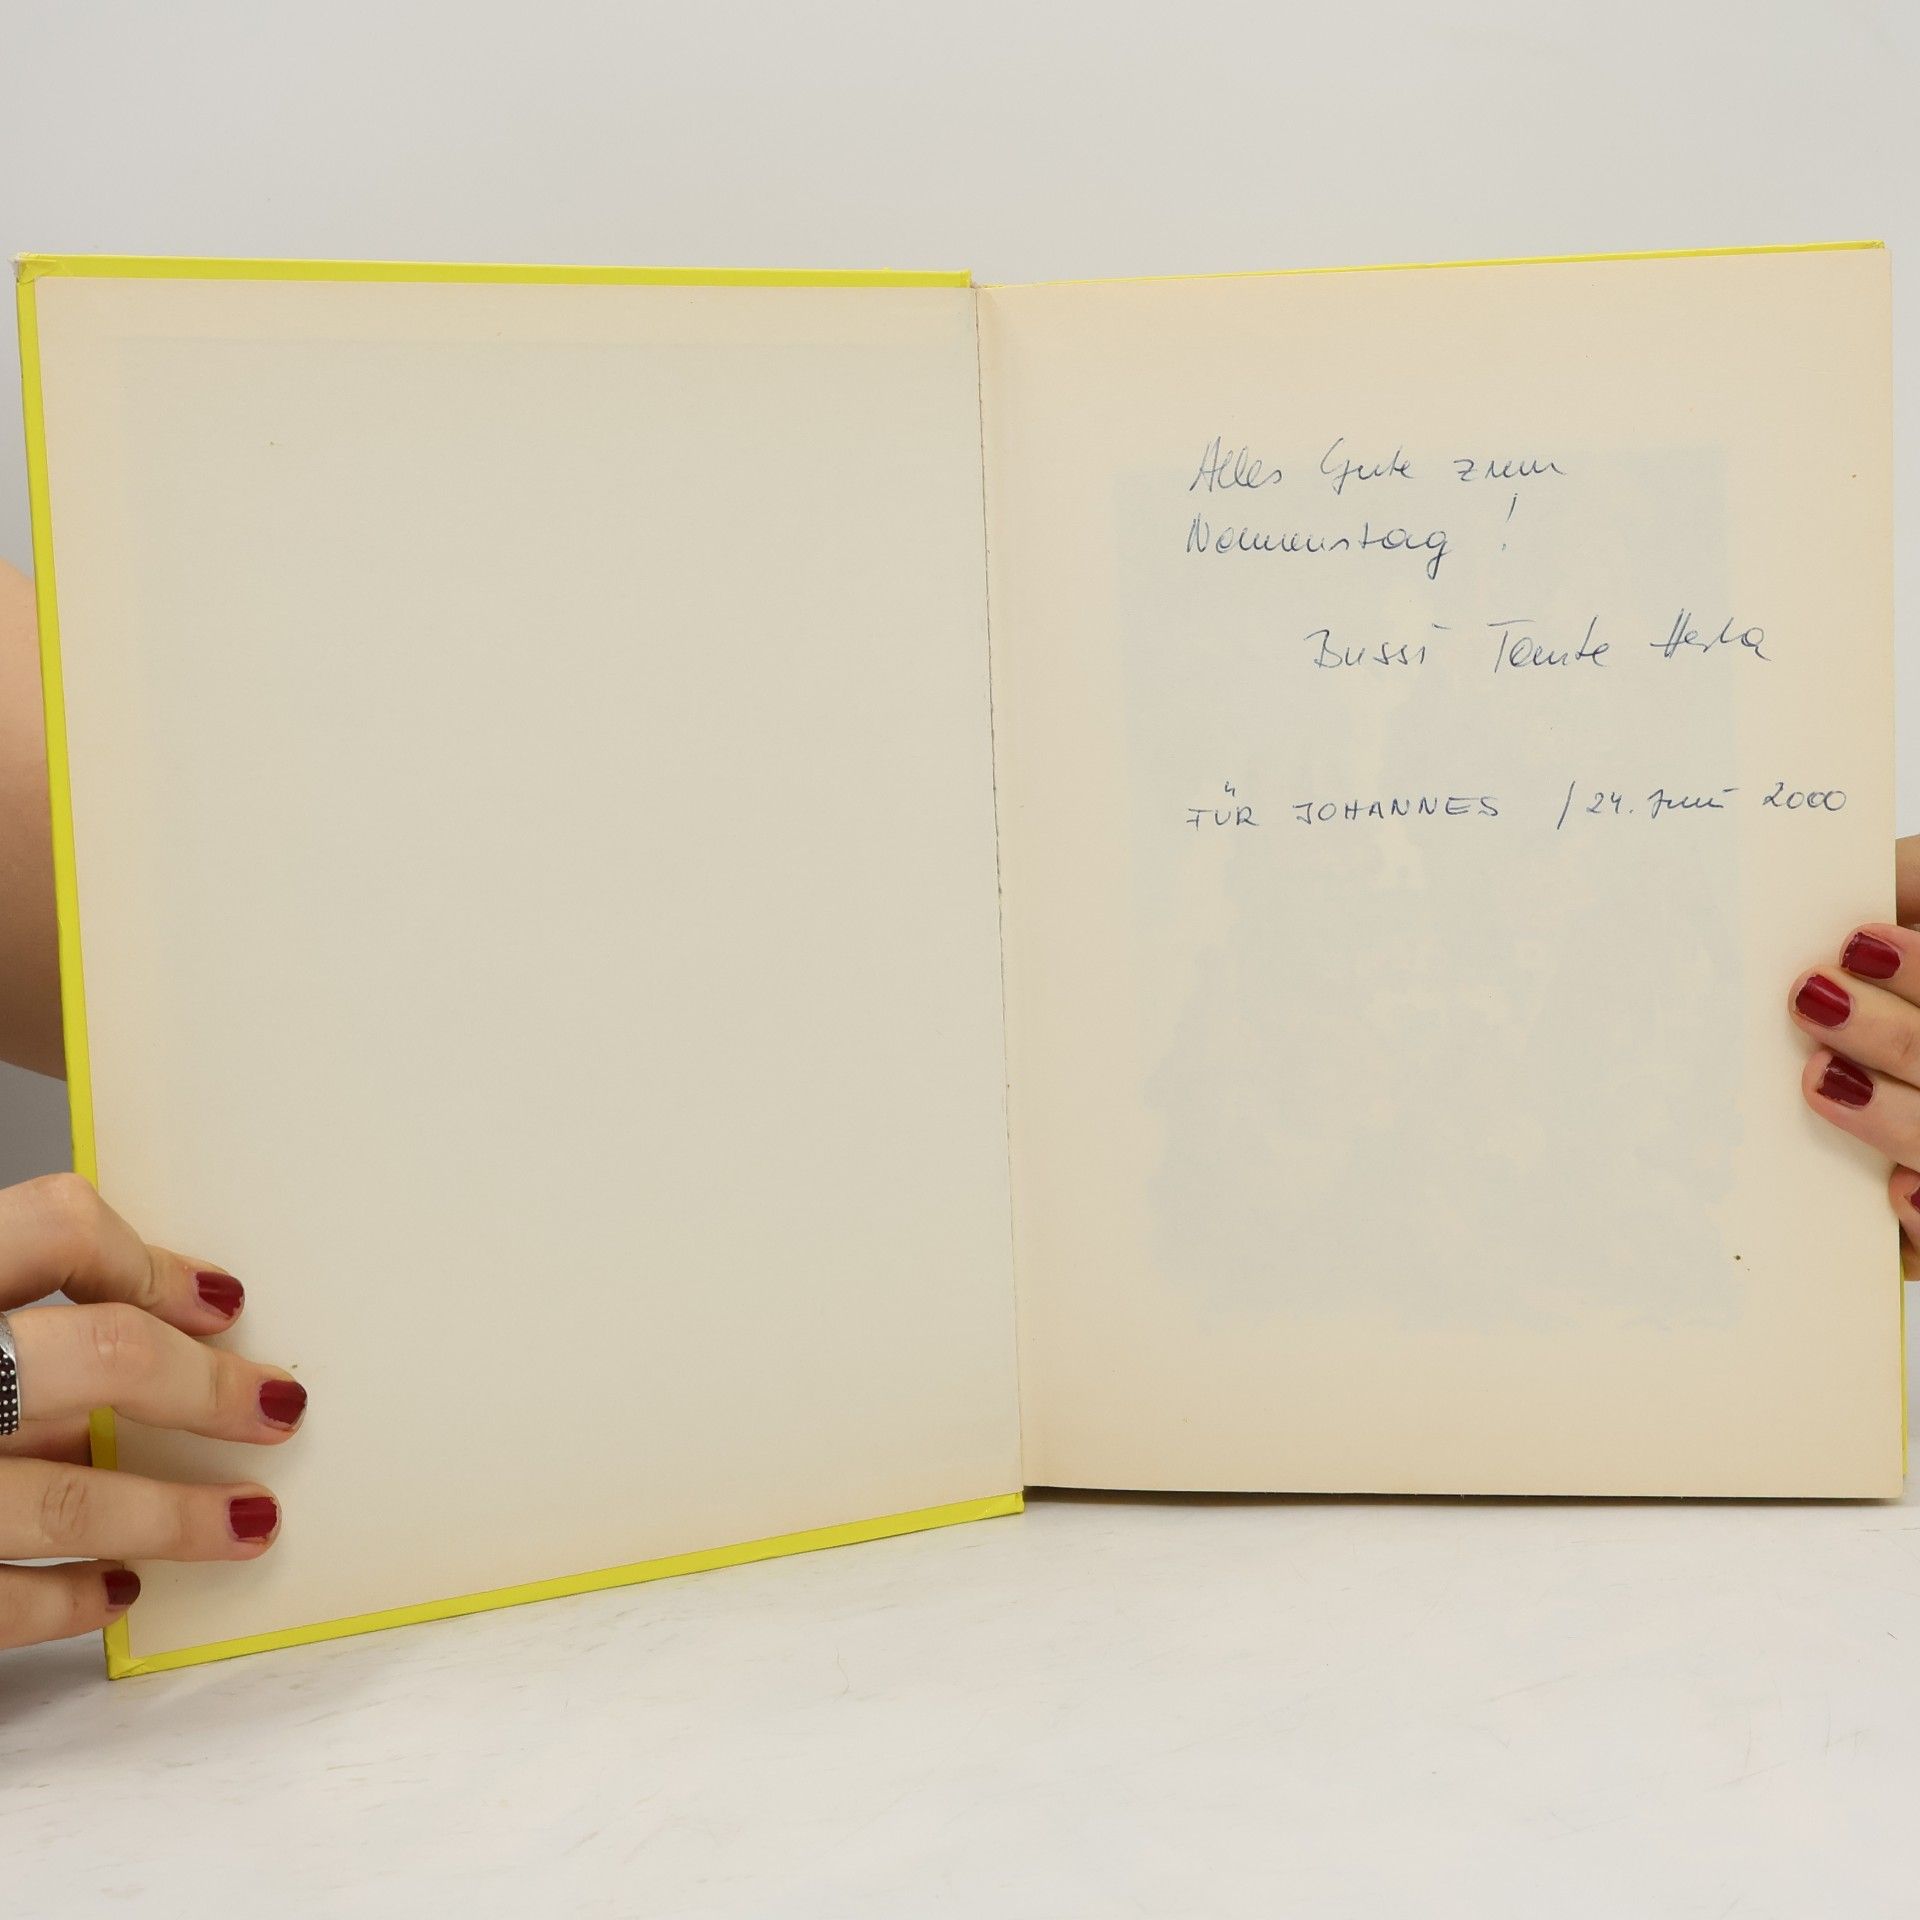 Alles Gute zum
Namenstag !
Bussi Tante Herta
FÜR JOHANNES / 24. Juni 2000